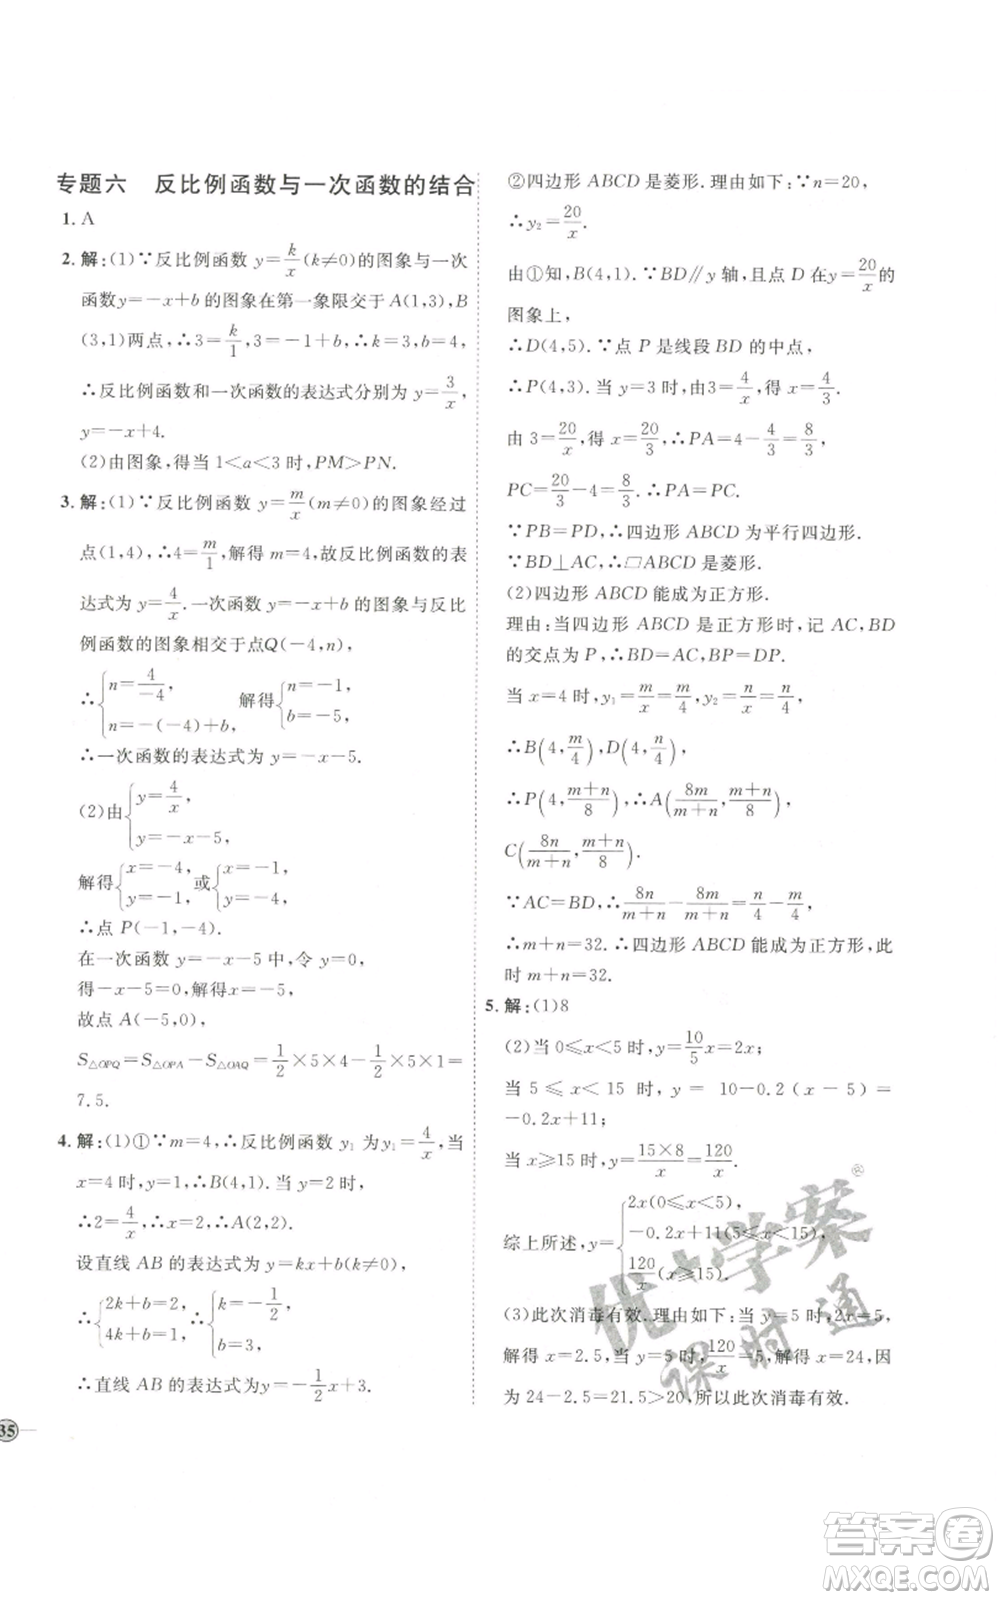 专题六 反比例函数与一次函数的结合
1. A
2. 解:(1)∵反比例函数 y=k/x(k≠0)的图象与一次
函数y=-x+b 的图象在第一象限交于 A(1,3),B
(3,1)两点,∴3=k/1,3=-1+b,∴k=3,b=4.
∴反比例函数和一次函数的表达式分别为 y=3/x,
y=-x+4.
(2)由图象,得当 1<a<3 时,PM>PN.
3. 解:(1)∵反比例函数 y=m/x(m≠0)的图象经过
点(1,4),∴4=m/1,解得 m=4,故反比例函数的表
达式为 y=4/x.一次函数 y=-x+b 的图象与反比
例函数的图象相交于点Q(-4,n),
∴{n=4/-4, n=-(-4)+b, 解得{n=-1, b=-5.
∴一次函数的表达式为 y=-x-5.
(2)由{y=4/x, y=-x-5,
解得{x=-4, y=-1, 或{x=-1, y=-4.
∴点 P(-1,-4).
在一次函数 y=-x-5 中,令 y=0,
得-x-5=0,解得 x=-5,
故点 A(-5,0),
S△OPQ=S△OPA-S△OAQ=1/2×5×4-1/2×5×1=
7.5.
4. 解:(1)①∵m=4,∴反比例函数 y₁ 为y₁=4/x,当
x=4 时,y=1,∴B(4,1).当 y=2 时,
∴2=4/x,∴x=2,∴A(2,2).
设直线 AB 的表达式为 y=kx+b(k≠0),
∴{2k+b=2, 4k+b=1, ∴{k=-1/2, b=3,
∴直线 AB 的表达式为y=-1/2x+3.
35
②四边形 ABCD 是菱形.理由如下:∵n=20,
∴y₂=20/x.
由①知,B(4,1).∵BD∥y 轴,且点 D 在y=20/x的
图象上,
∴D(4,5).∵点 P 是线段 BD 的中点,
∴P(4,3).当 y=3 时,由3=4/x,得 x=4/3.
由 3=20/x,得 x=20/3,∴PA=4-4/3=8/3,
PC=20/3-4=8/3,∴PA=PC.
∵PB=PD,∴四边形 ABCD 为平行四边形.
∵BD⊥AC,∴▱ABCD 是菱形.
(2)四边形 ABCD 能成为正方形.
理由:当四边形 ABCD 是正方形时,记 AC,BD
的交点为 P,∴BD=AC,BP=DP.
当 x=4 时,y₁=m/x=m/4,y₂=n/x=n/4.
∴B(4,m/4),D(4,n/4),
∴P(4,m+n/8),∴A(8m/m+n,m+n/8),
C(8n/m+n,m+n/8).
∵AC=BD,∴8n/m+n-8m/m+n=n/4-m/4,
∴m+n=32.∴四边形 ABCD 能成为正方形,此
时 m+n=32.
5. 解:(1)8
(2)当 0≤x<5 时,y=10/5x=2x;
当 5≤x<15 时,y=10-0.2(x-5)=
-0.2x+11;
当 x≥15 时,y=15×8/x=120/x.
综上所述,y={2x(0≤x<5), -0.2x+11(5≤x<15), 120/x(x≥15).
(3)此次消毒有效.理由如下:当 y=5 时,2x=5,
解得 x=2.5,当 y=5 时,120/x=5,解得 x=24,因
为 24-2.5=21.5>20,所以此次消毒有效.
优+学案
课时通
答案卷
MXQE.COM